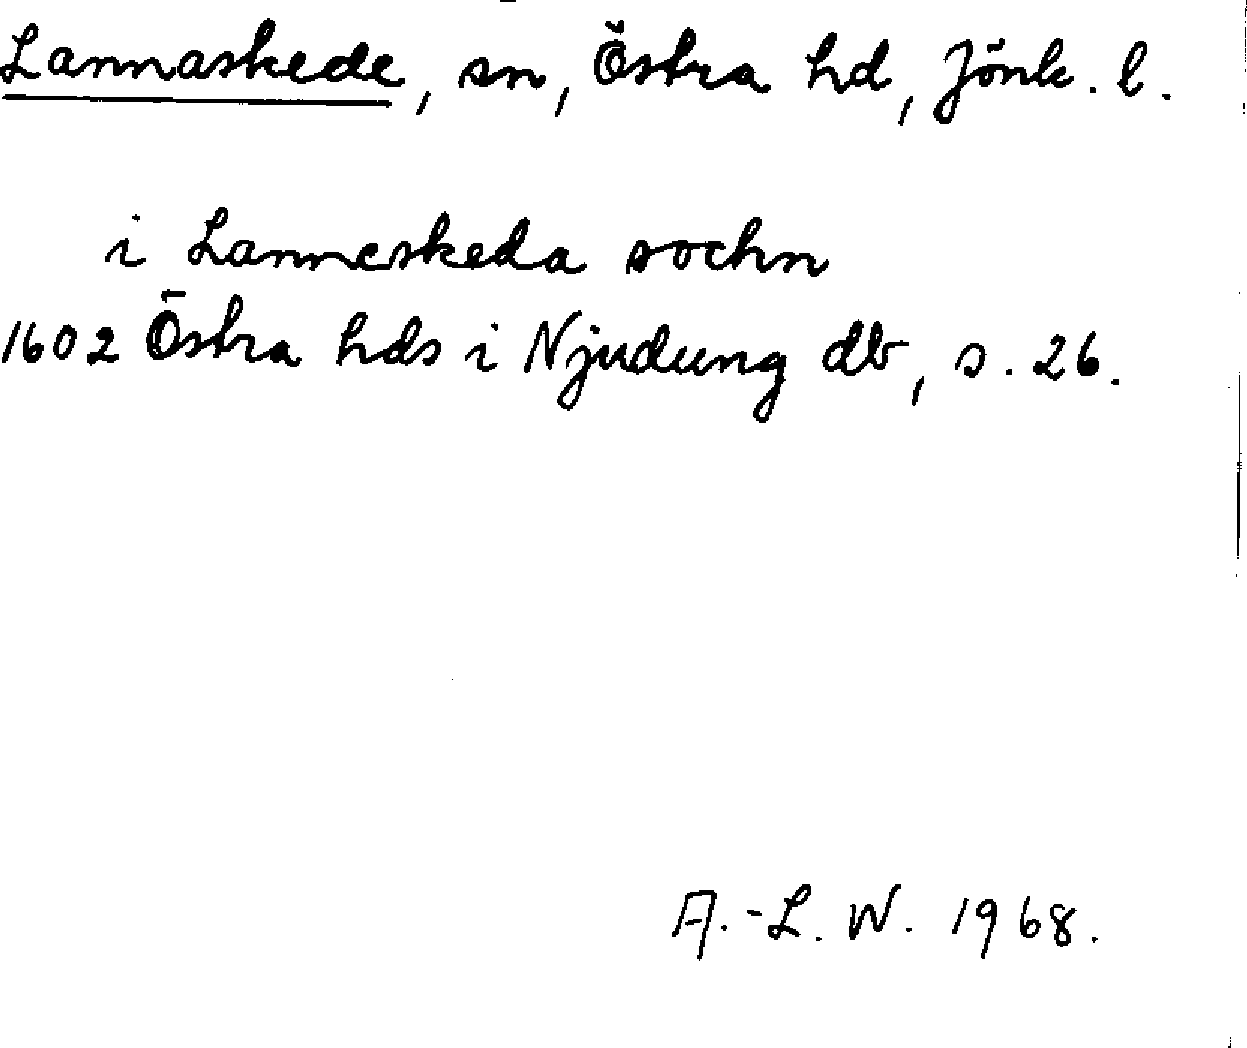 Lannaskede, sn, Östra hd, Jönk. l.
i Lanneskeda sochn
1602 Östra hds i Njudung db, s. 26.
A.-L. W. 1968.